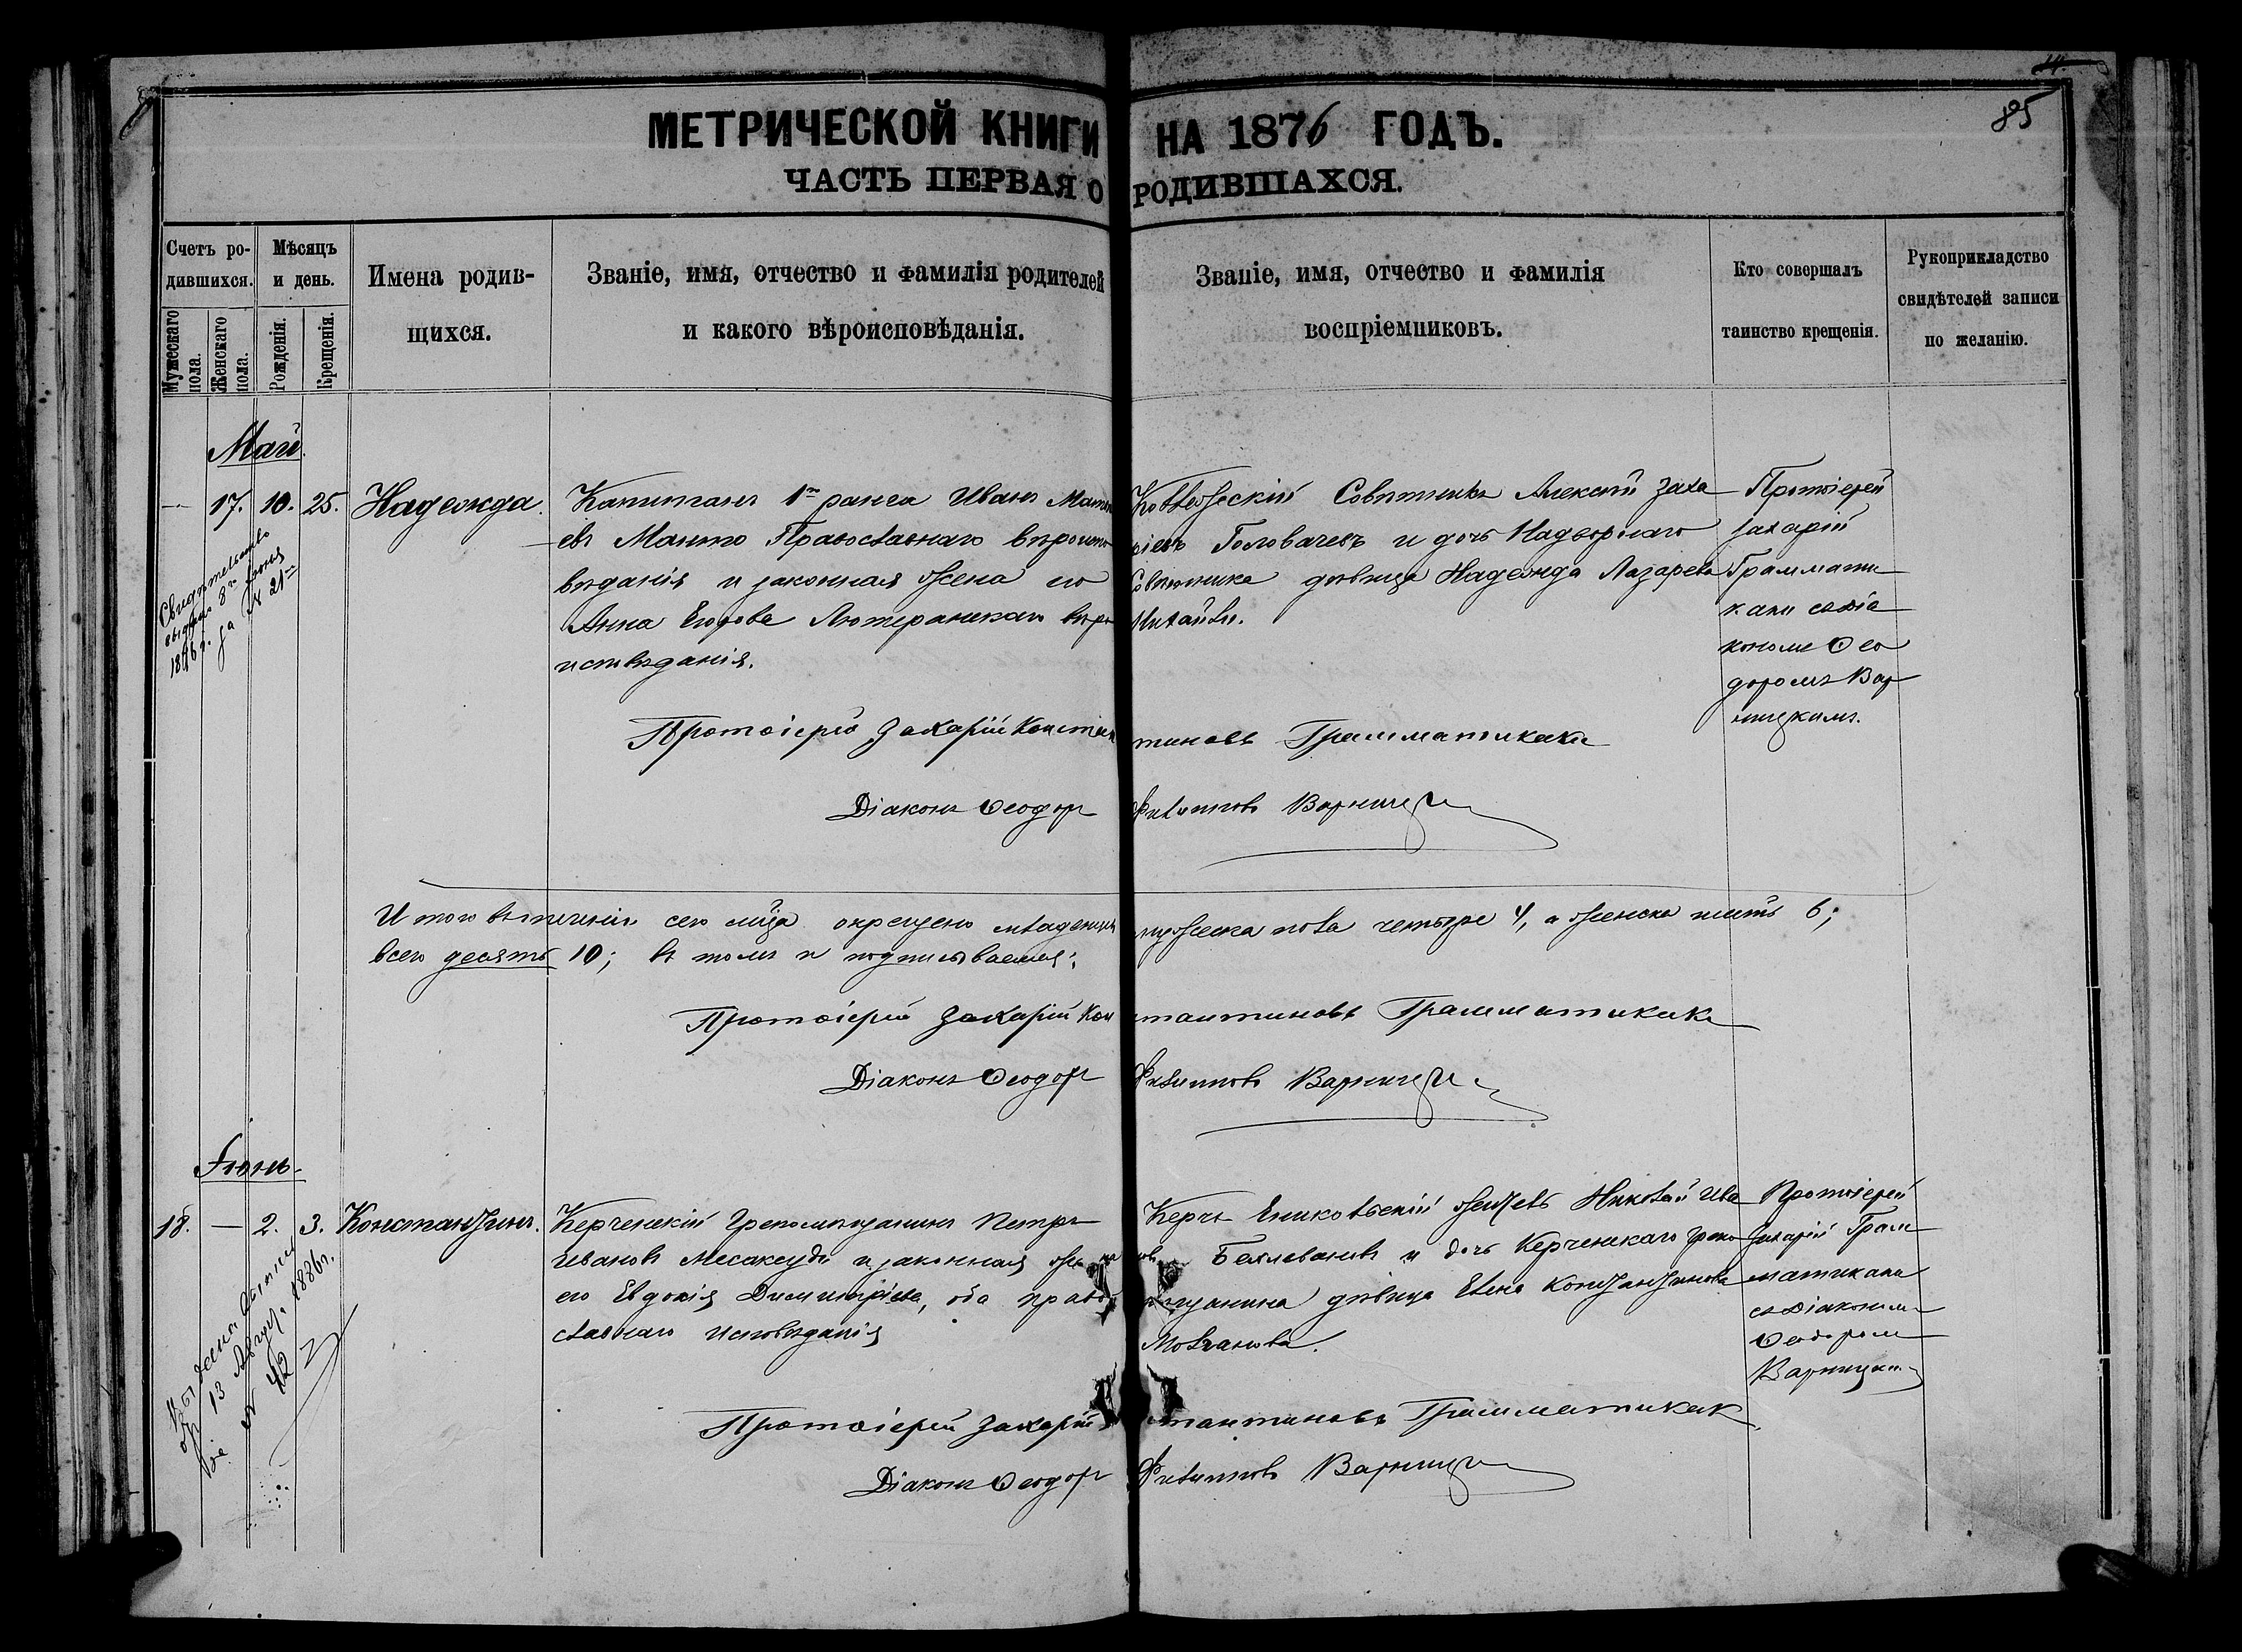 85
МЕТРИЧЕСКОЙ КНИГИ НА 1876 ГОДЪ.
ЧАСТЬ ПЕРВАЯ О РОДИВШАХСЯ.
Счетъ ро-
дившихся.
Мужескаго
пола.
Женскаго
пола.
Мѣсяцъ
и день.
Рожденія.
Крещенія.
Имена родив-
щихся.
Званіе, имя, отчество и фамилія родителей
и какого вѣроисповѣданія.
Званіе, имя, отчество и фамилія
воспріемниковъ.
Кто совершалъ
таинство крещенія.
Рукоприкладство
свидѣтелей записи
по желанію.
Май.
— 17. 10. 25. Надежда.
Свидѣтельство
выдано 8го Іюня
1876 г. за № 21мъ
Капитанъ 1го ранга Иванъ Матвѣ
евъ Манто Православнаго вѣроиспо
вѣданія и законная жена его
Анна Егорова Лютеранскаго вѣро
исповѣданія.
Коллежскій Совѣтникъ Алексѣй Заха
ріевъ Головачевъ и дочь Надворнаго
Совѣтника дѣвица Надежда Лазарева
Михайли.
Протоіерей
Захарій
Граммати
каки съ діа
кономъ Ѳео
доромъ Вар
ницкимъ.
Протоіерей Захарій Константиновъ Грамматикаки
Діаконъ Ѳеодоръ Филиповъ Варницкій
Итого въ теченіи сего мѣсяца окрещено младенцевъ мужеска пола четыре 4, а женска шесть 6;
всего десять 10; въ томъ и подписываемся:
Протоіерей Захарій Константиновъ Грамматикаки
Діаконъ Ѳеодоръ Филиповъ Варницкій
Іюнь.
18. — 2. 3. Константинъ.
13 Августа 1886 г.
№ 42
Керченскій Грекомѣщанинъ Петръ
Ивановъ Месаксуди и законная жена
его Евдокія Димитріева, оба право
славнаго исповѣданія
Керчь Ениковьскій житель Николай Ива
новъ и дочь Керченскаго греко
мѣщанина дѣвица Елена Константинова
Молчанова.
Протоіерей
Захарій Грам
матикаки
съ Діакономъ
Ѳеодоромъ
Варницкимъ
Протоіерей Захарій Константиновъ Грамматикаки
Діаконъ Ѳеодоръ Филиповъ Варницкій